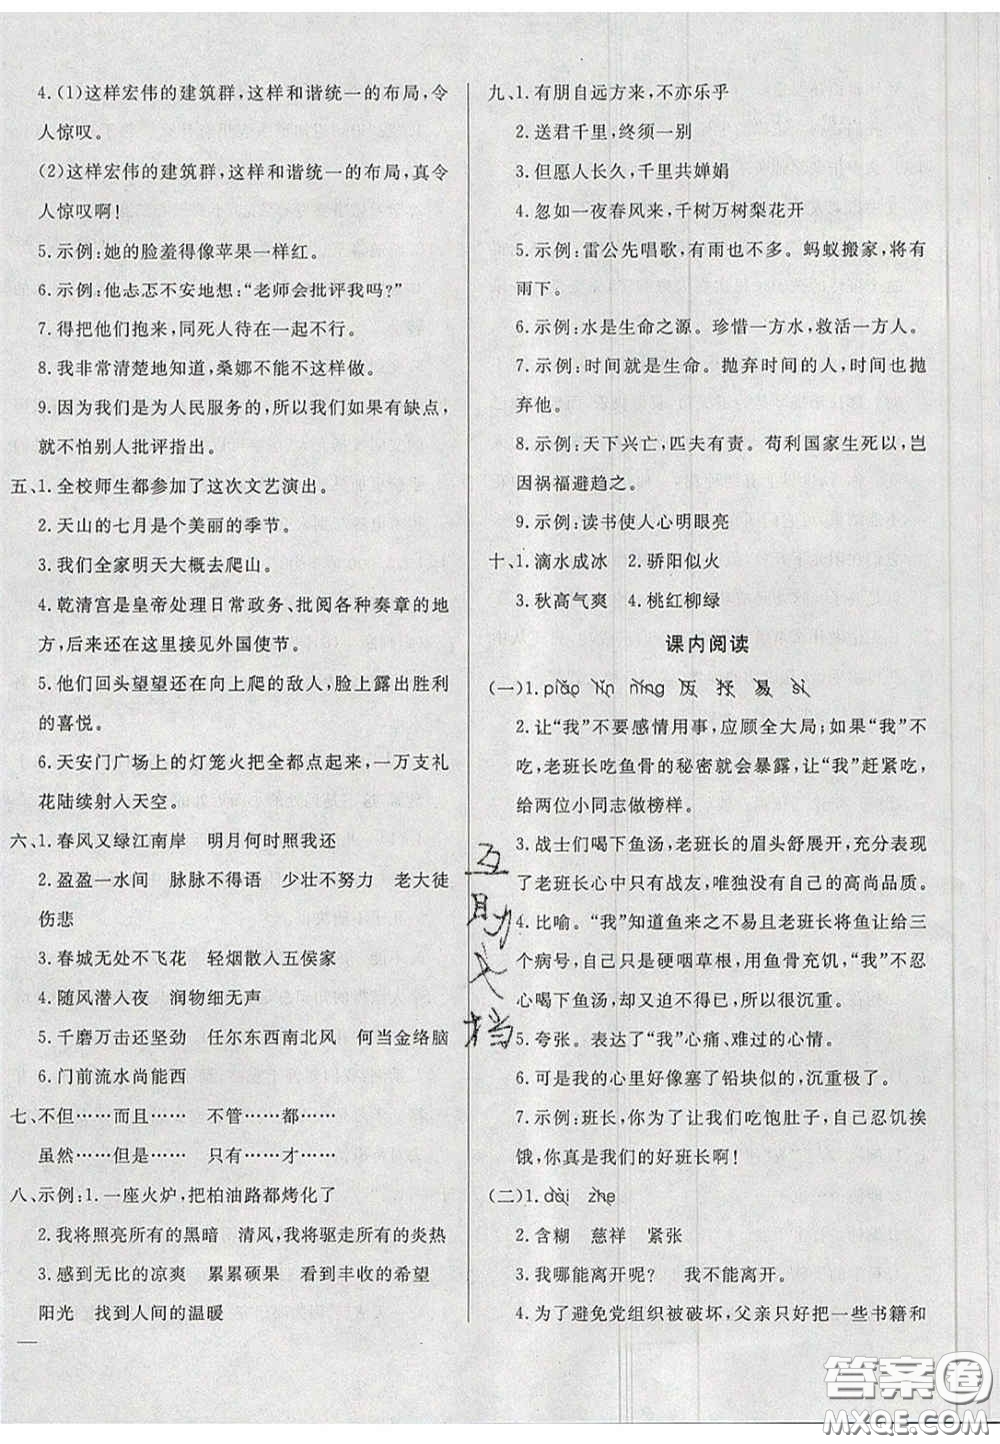 4.(1)这样宏伟的建筑群,这样和谐统一的布局,令
人惊叹。
(2)这样宏伟的建筑群,这样和谐统一的布局,真令
人惊叹啊!
5.示例:她的脸羞得像苹果一样红。
6.示例:他忐忑不安地想:“老师会批评我吗?”
7.得把他们抱来,同死人待在一起不行。
8.我非常清楚地知道,桑娜不能这样做。
9.因为我们是为人民服务的,所以我们如果有缺点,
就不怕别人批评指出。
五、1.全校师生都参加了这次文艺演出。
2.天山的七月是个美丽的季节。
3.我们全家明天大概去爬山。
4.乾清宫是皇帝处理日常政务、批阅各种奏章的地
方,后来还在这里接见外国使节。
5.他们回头望望还在向上爬的敌人,脸上露出胜利
的喜悦。
6.天安门广场上的灯笼火把全都点起来,一万支礼
花陆续射人天空。
六、1.春风又绿江南岸 明月何时照我还
2.盈盈一水间 脉脉不得语 少壮不努力 老大徒
伤悲
3.春城无处不飞花 轻烟散人五侯家
4.随风潜人夜 润物细无声
5.千磨万击还坚劲 任尔东西南北风 何当金络脑
6.门前流水尚能西
七、不但……而且…… 不管……都……
虽然……但是…… 只有……才……
八、示例:1.一座火炉,把柏油路都烤化了
2.我将照亮所有的黑暗 清风,我将驱走所有的炎热
3.感到无比的凉爽 累累硕果 看到丰收的希望
阳光 找到人间的温暖
九、1.有朋自远方来,不亦乐乎
2.送君千里,终须一别
3.但愿人长久,千里共婵娟
4.忽如一夜春风来,千树万树梨花开
5.示例:雷公先唱歌,有雨也不多。蚂蚁搬家,将有
雨下。
6.示例:水是生命之源。珍惜一方水,救活一方人。
7.示例:时间就是生命。抛弃时间的人,时间也抛
弃他。
8.示例:天下兴亡,匹夫有责。苟利国家生死以,岂
因祸福避趋之。
9.示例:读书使人心明眼亮
十、1.滴水成冰 2.骄阳似火
3.秋高气爽 4.桃红柳绿
课内阅读
(一)1.piāo lín níng 历 抒 易 sì
2.让“我”不要感情用事,应顾全大局;如果“我”不
吃,老班长吃鱼骨的秘密就会暴露,“我”赶紧吃,
给两位小同志做榜样。
3.战士们喝下鱼汤,老班长的眉头舒展开,充分展现
了老班长心中只有战友,唯独没有自己的高尚品质。
4.比喻。“我”知道鱼来之不易且老班长将鱼让给三
个病号,自己只是硬咽草根,用鱼骨充饥,“我”不忍
心喝下鱼汤,却又迫不得已,所以很沉重。
5.夸张。表达了“我”心痛、难过的心情。
6.可是我的心里好像塞了铅块似的,沉重极了。
7.示例:班长,你为了让我们吃饱肚子,自己忍饥挨
饿,你真是我们的好班长啊!
(二)1.dāi zhe
2.含糊 慈祥 紧张
3.我哪能离开呢? 我不能离开。
4.为了避免党组织被破坏,父亲只好把一些书籍和
互助文档
答案圈
MXQE.COM